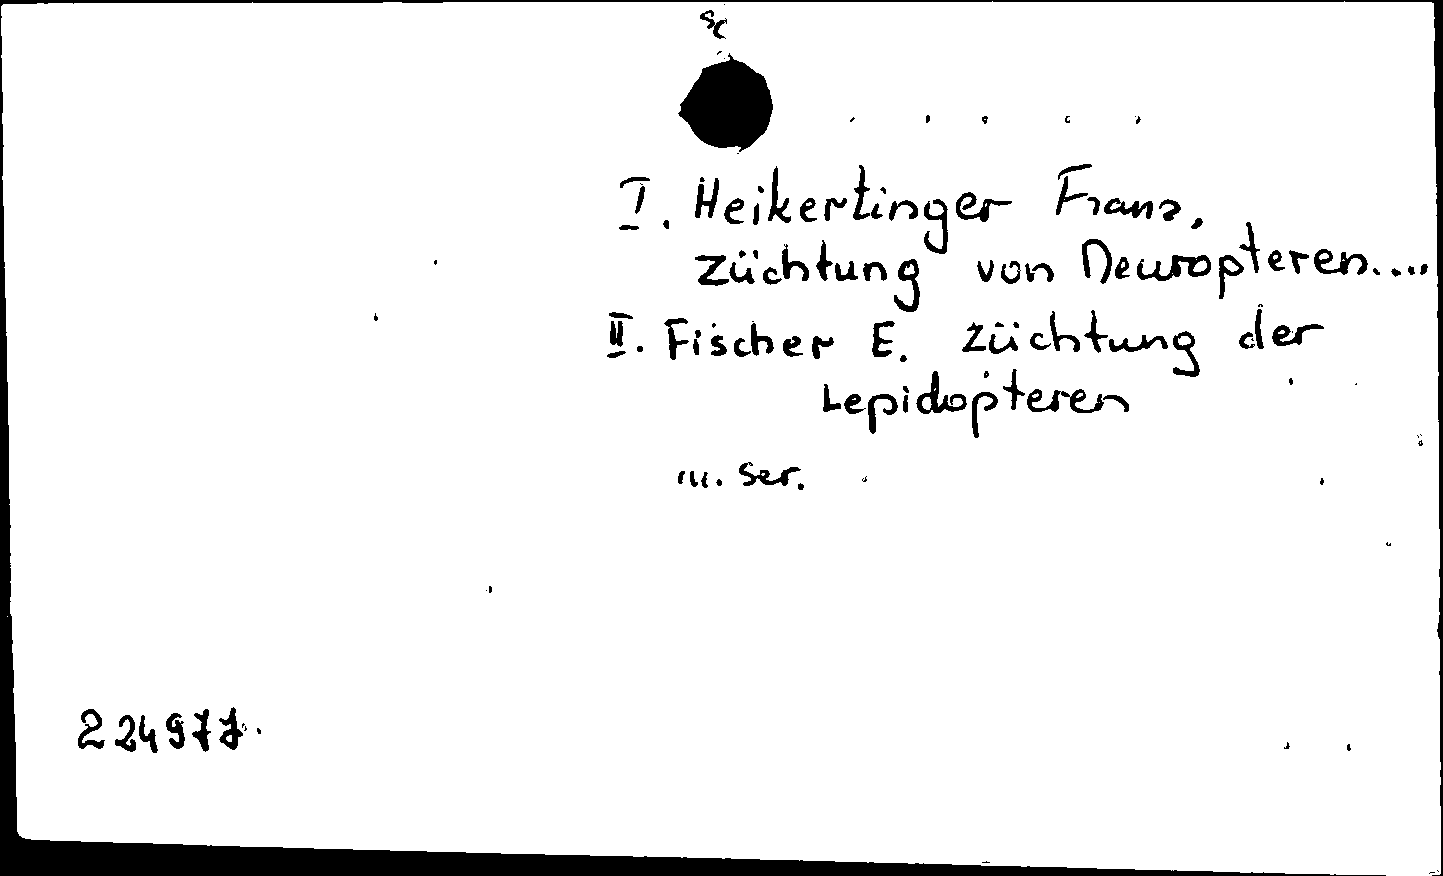 I. Heikertinger Franz,
Züchtung von Neuropteren....
II. Fischer E. Züchtung der
Lepidopteren
III. ser.
224977.